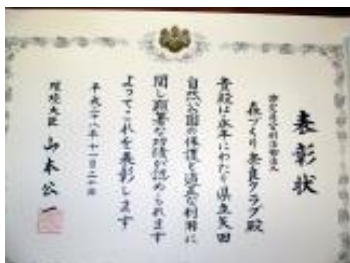 表彰状
特定非営利活動法人
森づくり奈良クラブ殿
貴殿は永年にわたり県立矢田
自然公園の保護と適正な利用に
関し顕著な功績が認められます
よってこれを表彰します
平成二十八年十一月二十日
環境大臣 山本公一